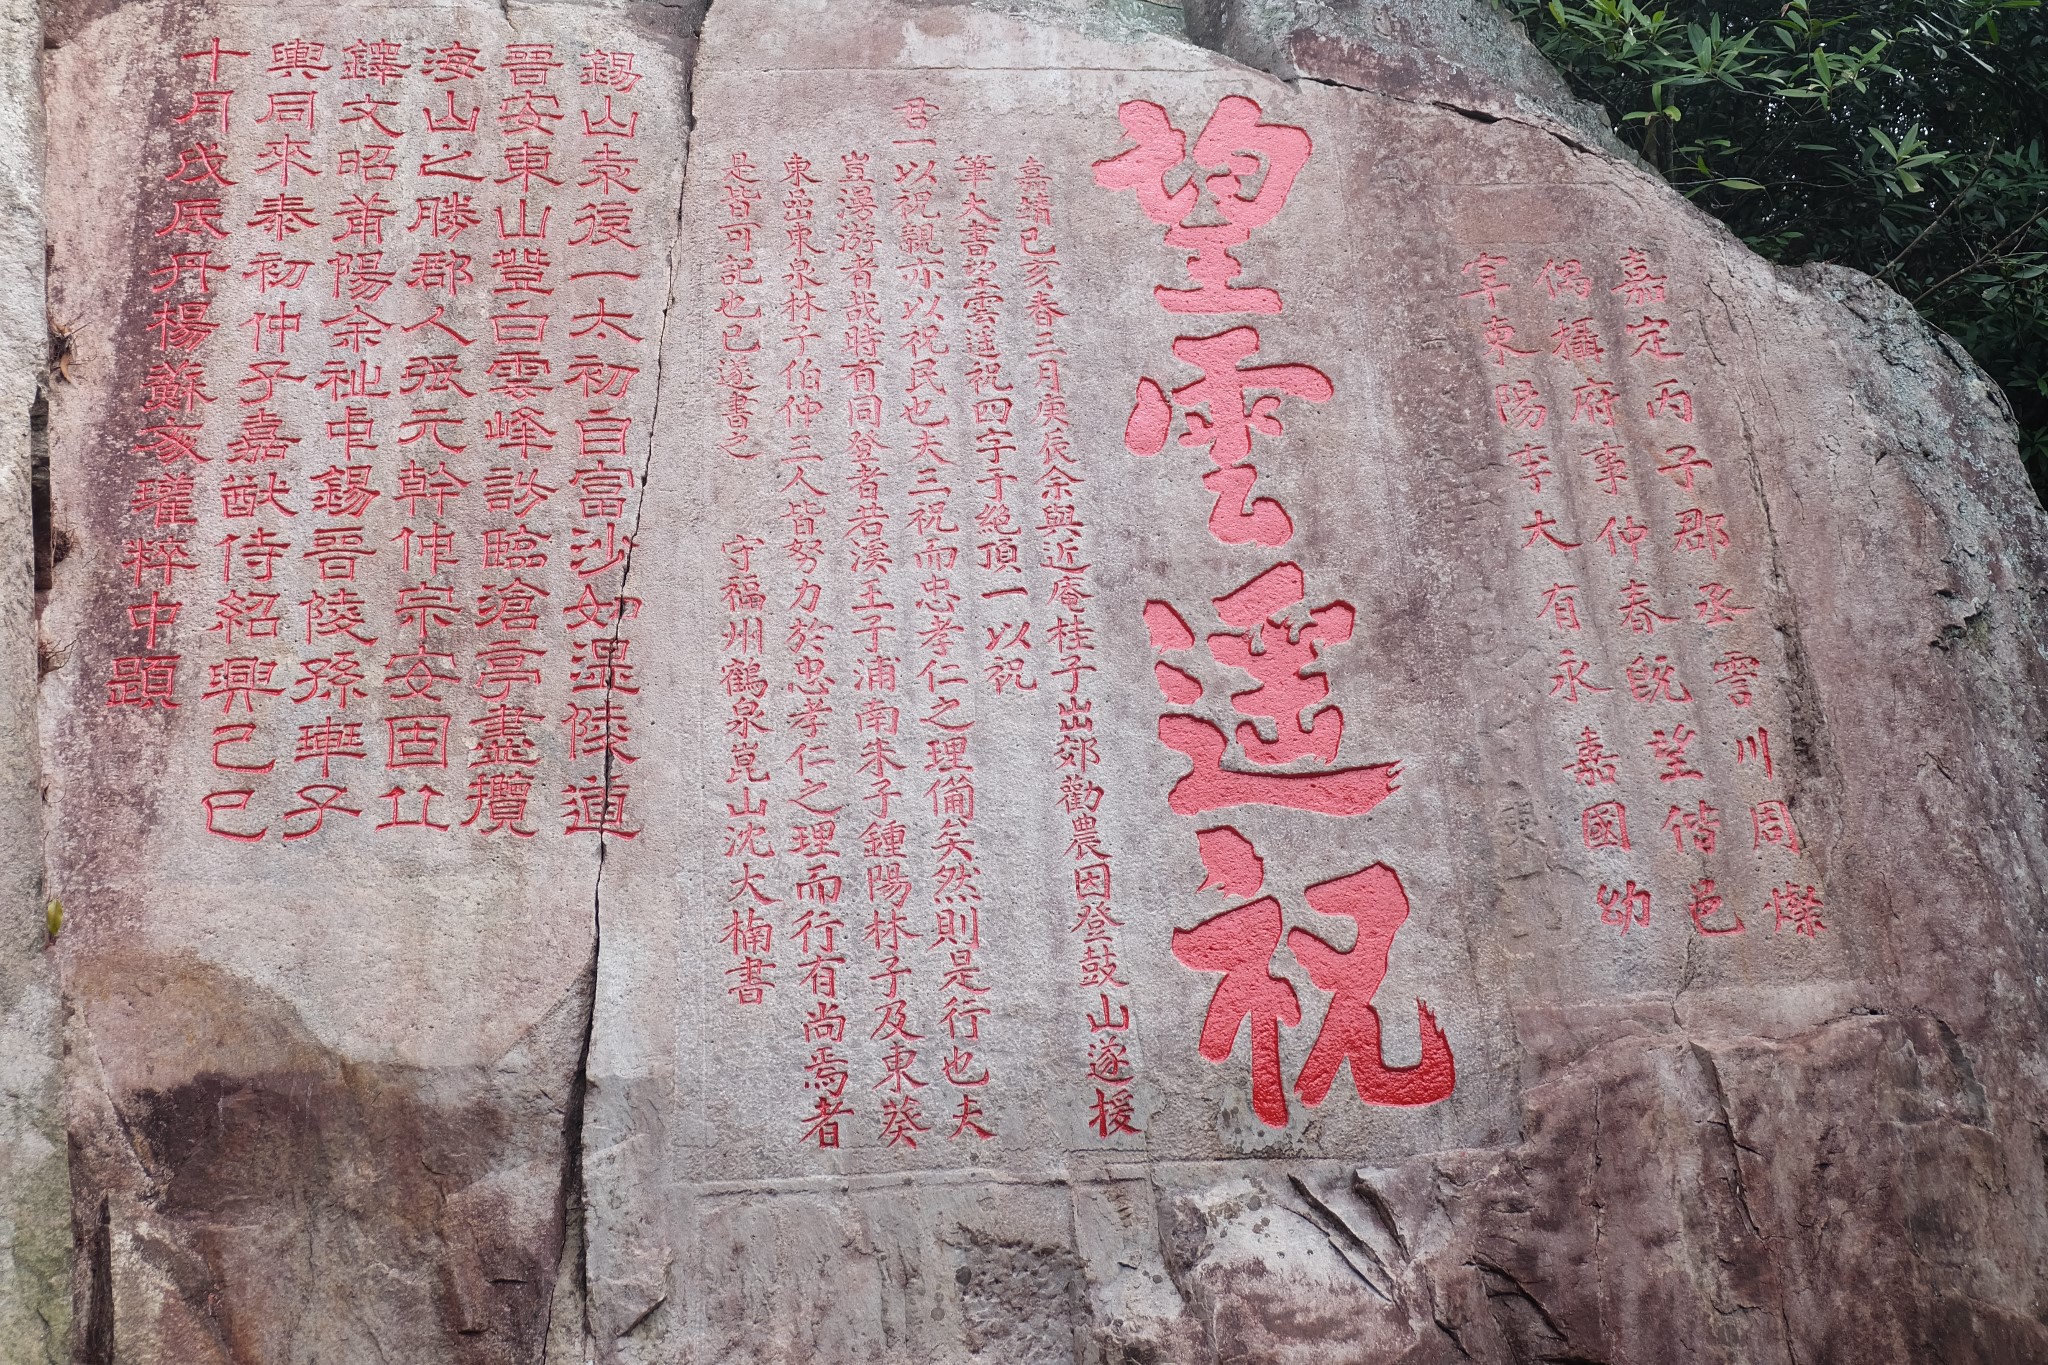 嘉定丙子郡丞霅川周燦
偶攝府事仲春既望偕邑
宰東陽李大有永嘉國幼
望雲遥祝
嘉靖己亥春三月庚辰余與近庵桂子出郊勸農因登鼓山遂援
筆大書望雲遥祝四字于絶頂一以祝
君一以祝親亦以祝民也夫三祝而忠孝仁之理備矣然則是行也夫
豈漫游者哉時有同登者若溪王子浦南朱子鍾陽林子及東葵
東嵒東泉林子伯仲三人皆努力於忠孝仁之理而行有尚焉者
是皆可記也已遂書之
守福州鶴泉崑山沈大楠書
錫山袁復一太初自富沙如温陵道
晉安東山登白雲峰訪臨滄亭盡攬
海山之勝郡人張元幹仲宗安固丘
鐸文昭莆陽余祉中錫晉陵孫𨏈子
輿同來泰初仲子嘉猷侍紹興己巳
十月戊辰丹楊蘇文瓘粹中題